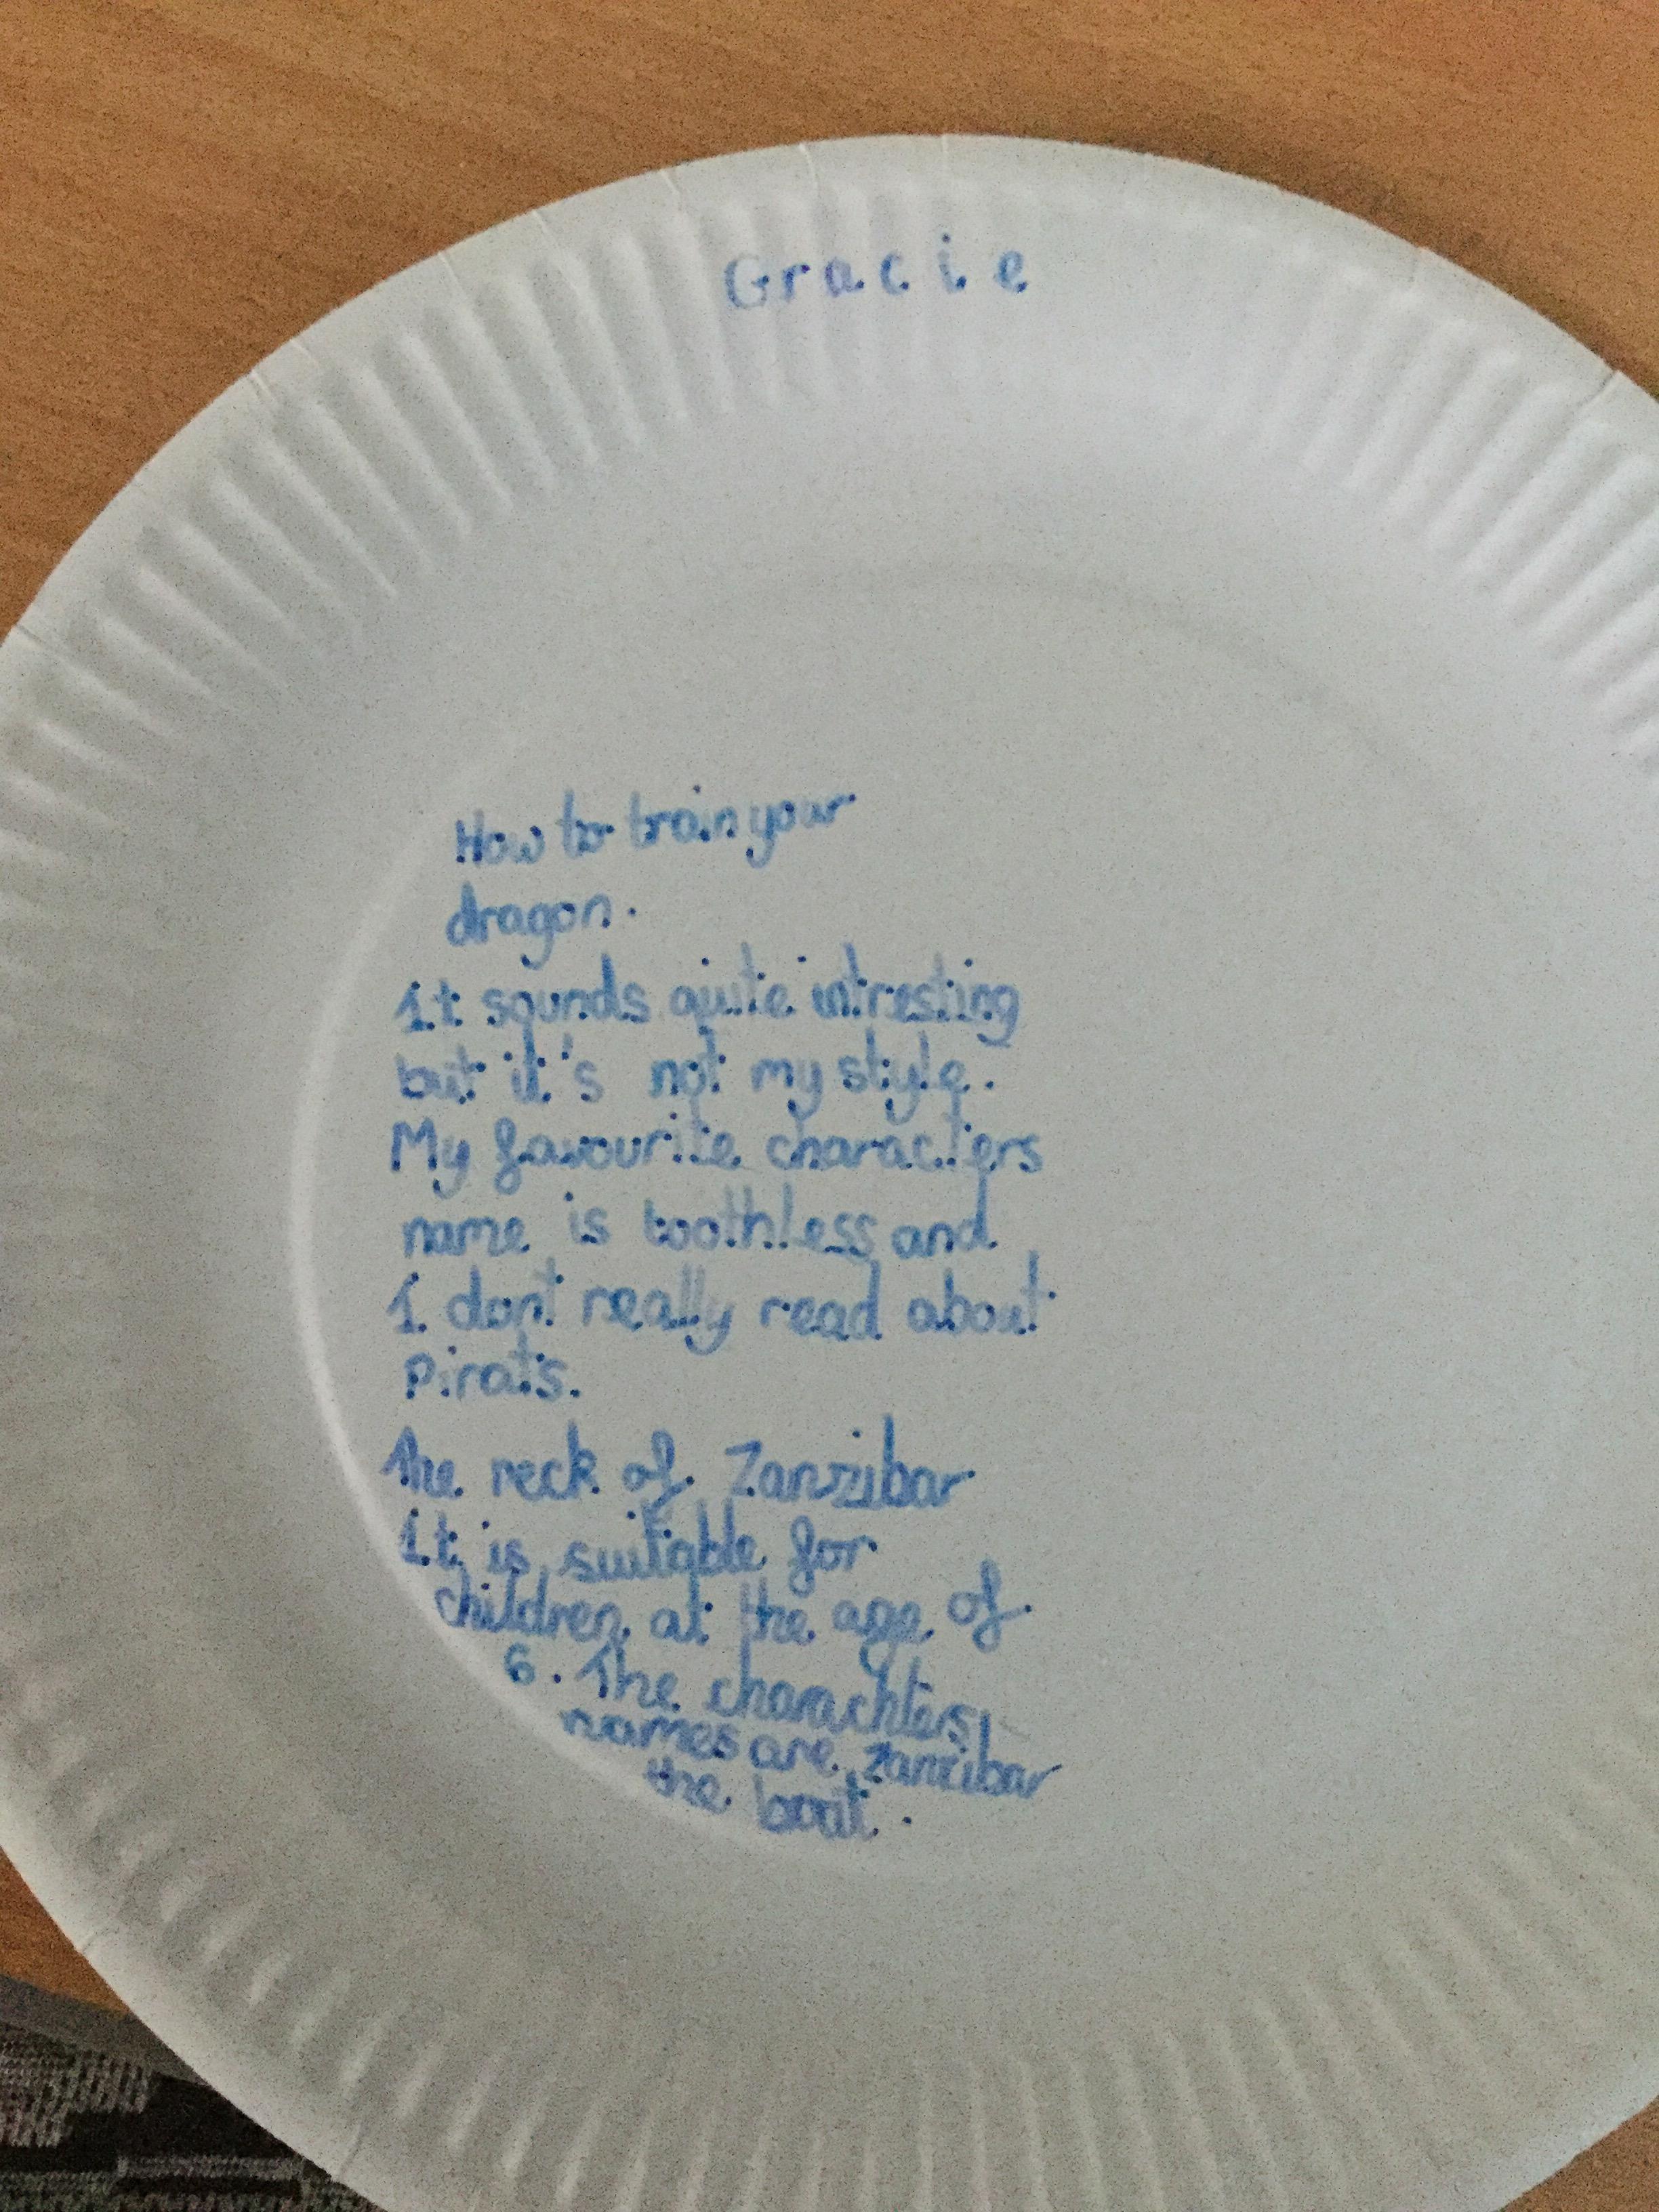 Gracie
How to train your
dragon.
It sounds quite intresting
but it's not my style.
My favourite characters
name is toothless and
I don't really read about
Pirats.
The reck of Zanzibar
It is suitable for
children at the age of
6. The charachters
names are Zanzibar
the boat.